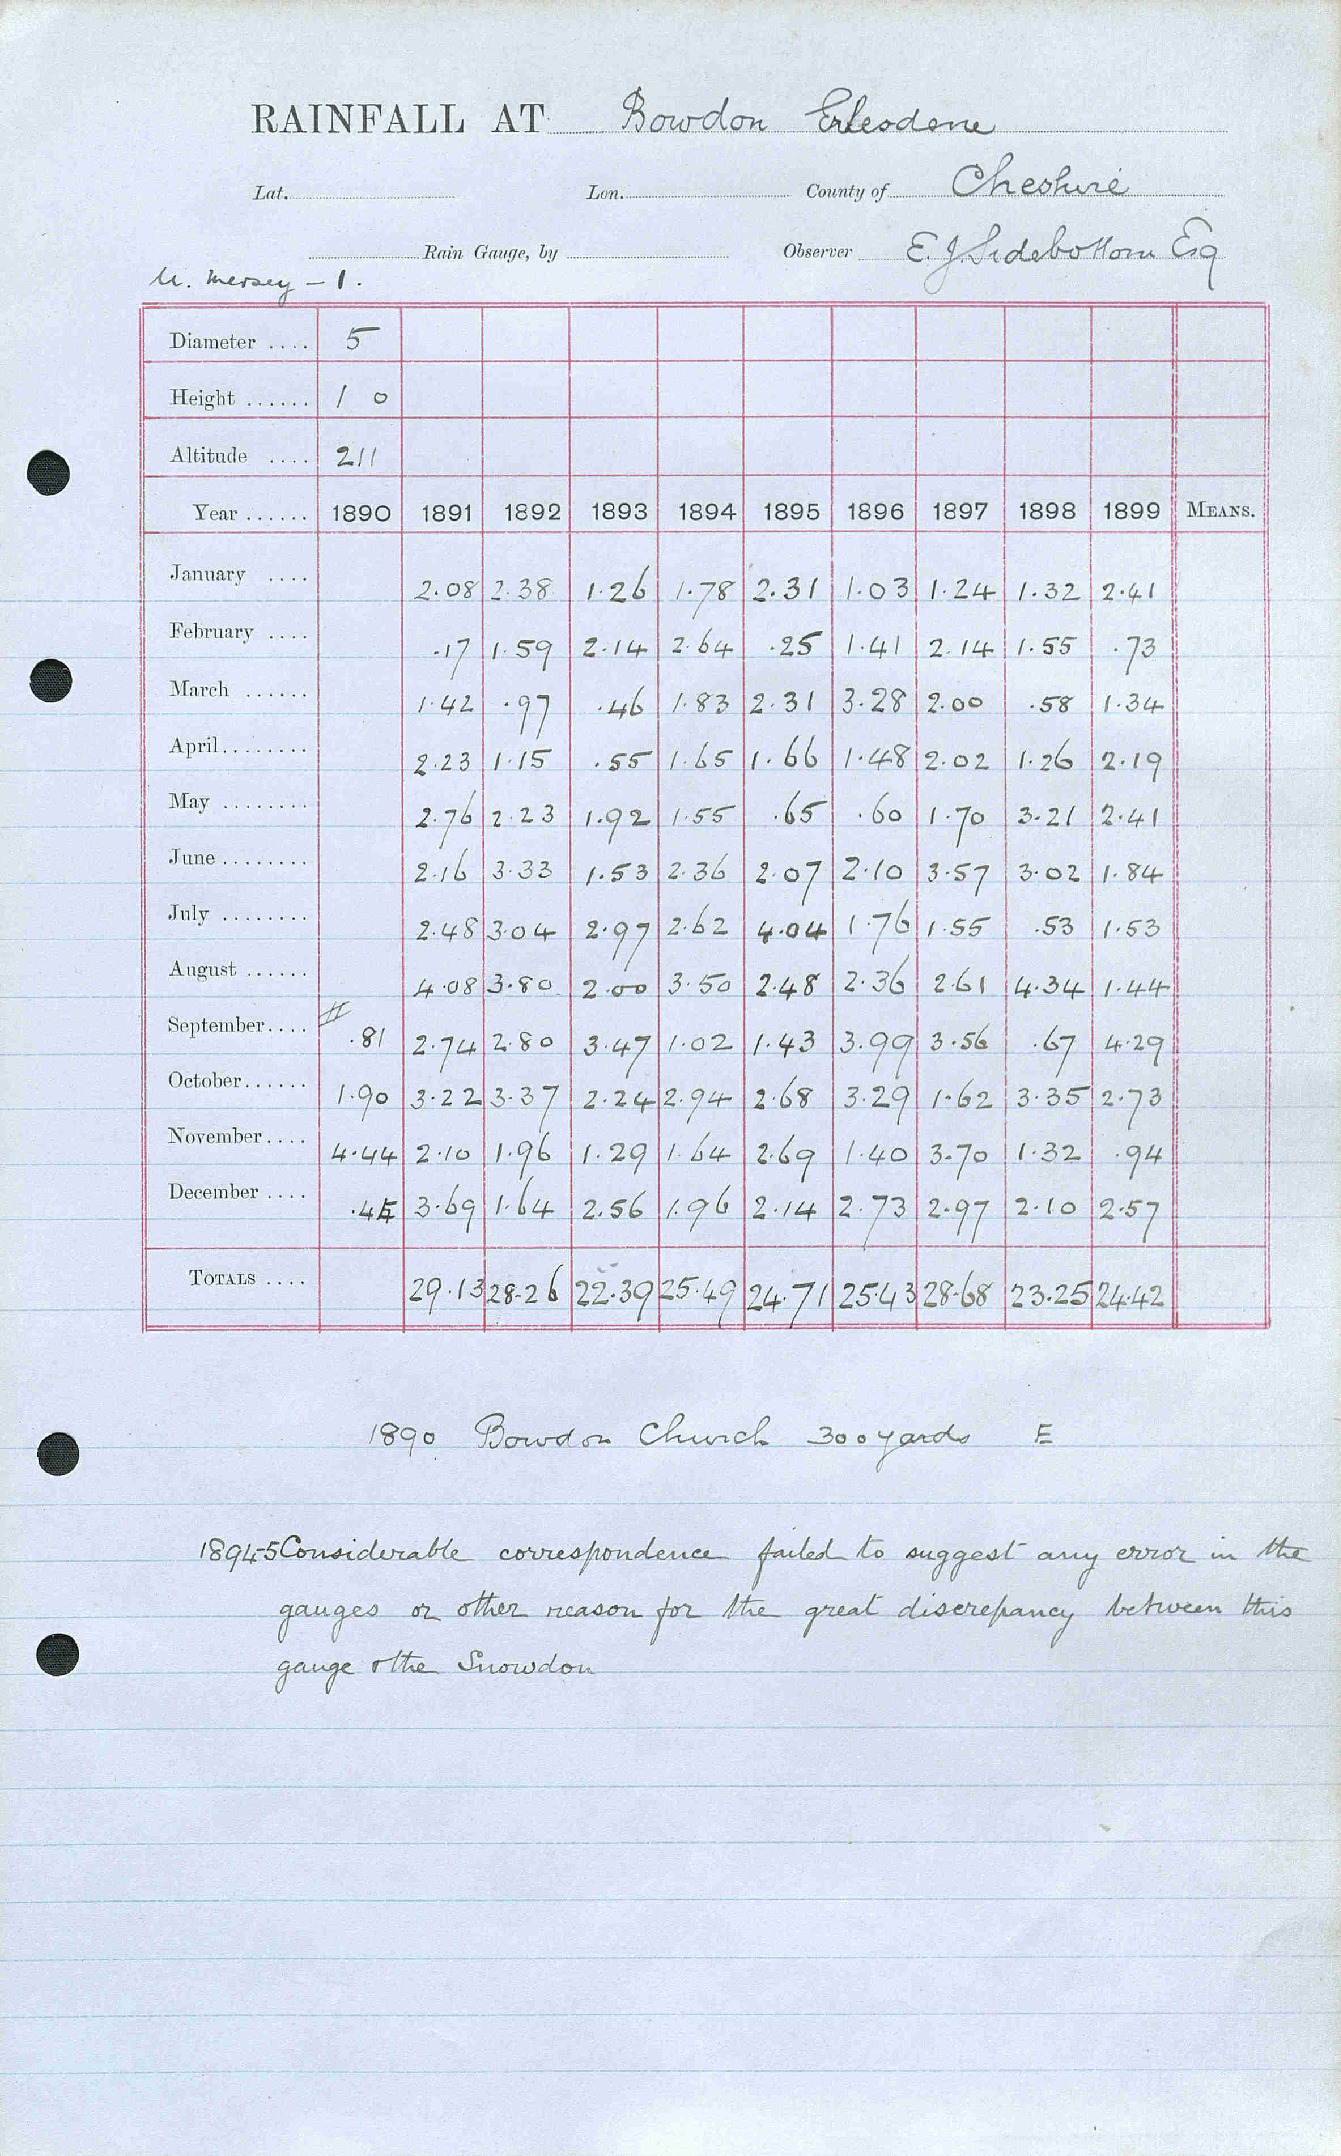 RAINFALL AT Bowdon Erlesdene
Lat. Lon. County of Cheshire
Rain Gauge, by Observer E. J. Sidebottom Esq
U. Mersey - 1.
Diameter .... 5
Height ...... 1 0
Altitude .... 211
Year ...... 1890 1891 1892 1893 1894 1895 1896 1897 1898 1899 MEANS.
January .... 2.08 2.38 1.26 1.78 2.31 1.03 1.24 1.32 2.41
February .... .17 1.59 2.14 2.64 .25 1.41 2.14 1.55 .73
March ...... 1.42 .97 .46 1.83 2.31 3.28 2.00 .58 1.34
April........ 2.23 1.15 .55 1.65 1.66 1.48 2.02 1.26 2.19
May ........ 2.76 2.23 1.92 1.55 .65 .60 1.70 3.21 2.41
June ........ 2.16 3.33 1.53 2.36 2.07 2.10 3.57 3.02 1.84
July ........ 2.48 3.04 2.97 2.62 4.04 1.76 1.55 .53 1.53
August ...... 4.08 3.80 2.00 3.50 2.48 2.36 2.61 4.34 1.44
September.... .81 2.74 2.80 3.47 1.02 1.43 3.99 3.56 .67 4.29
October...... 1.90 3.22 3.37 2.24 2.94 2.68 3.29 1.62 3.35 2.73
November.... 4.44 2.10 1.96 1.29 1.64 2.69 1.40 3.70 1.32 .94
December .... 3.69 1.64 2.56 1.96 2.14 2.73 2.97 2.10 2.57
TOTALS .... 29.13 28.26 22.39 25.49 24.71 25.43 28.68 23.25 24.42
1890 Bowdon Church 300 yards E
1894-5 Considerable correspondence failed to suggest any error in the
gauges or other reason for the great discrepancy between this
gauge & the Snowdon